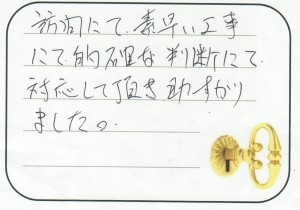 訪問にて、素早い工事
にて、的確な判断にて
対応して頂き、助すかり
ました。